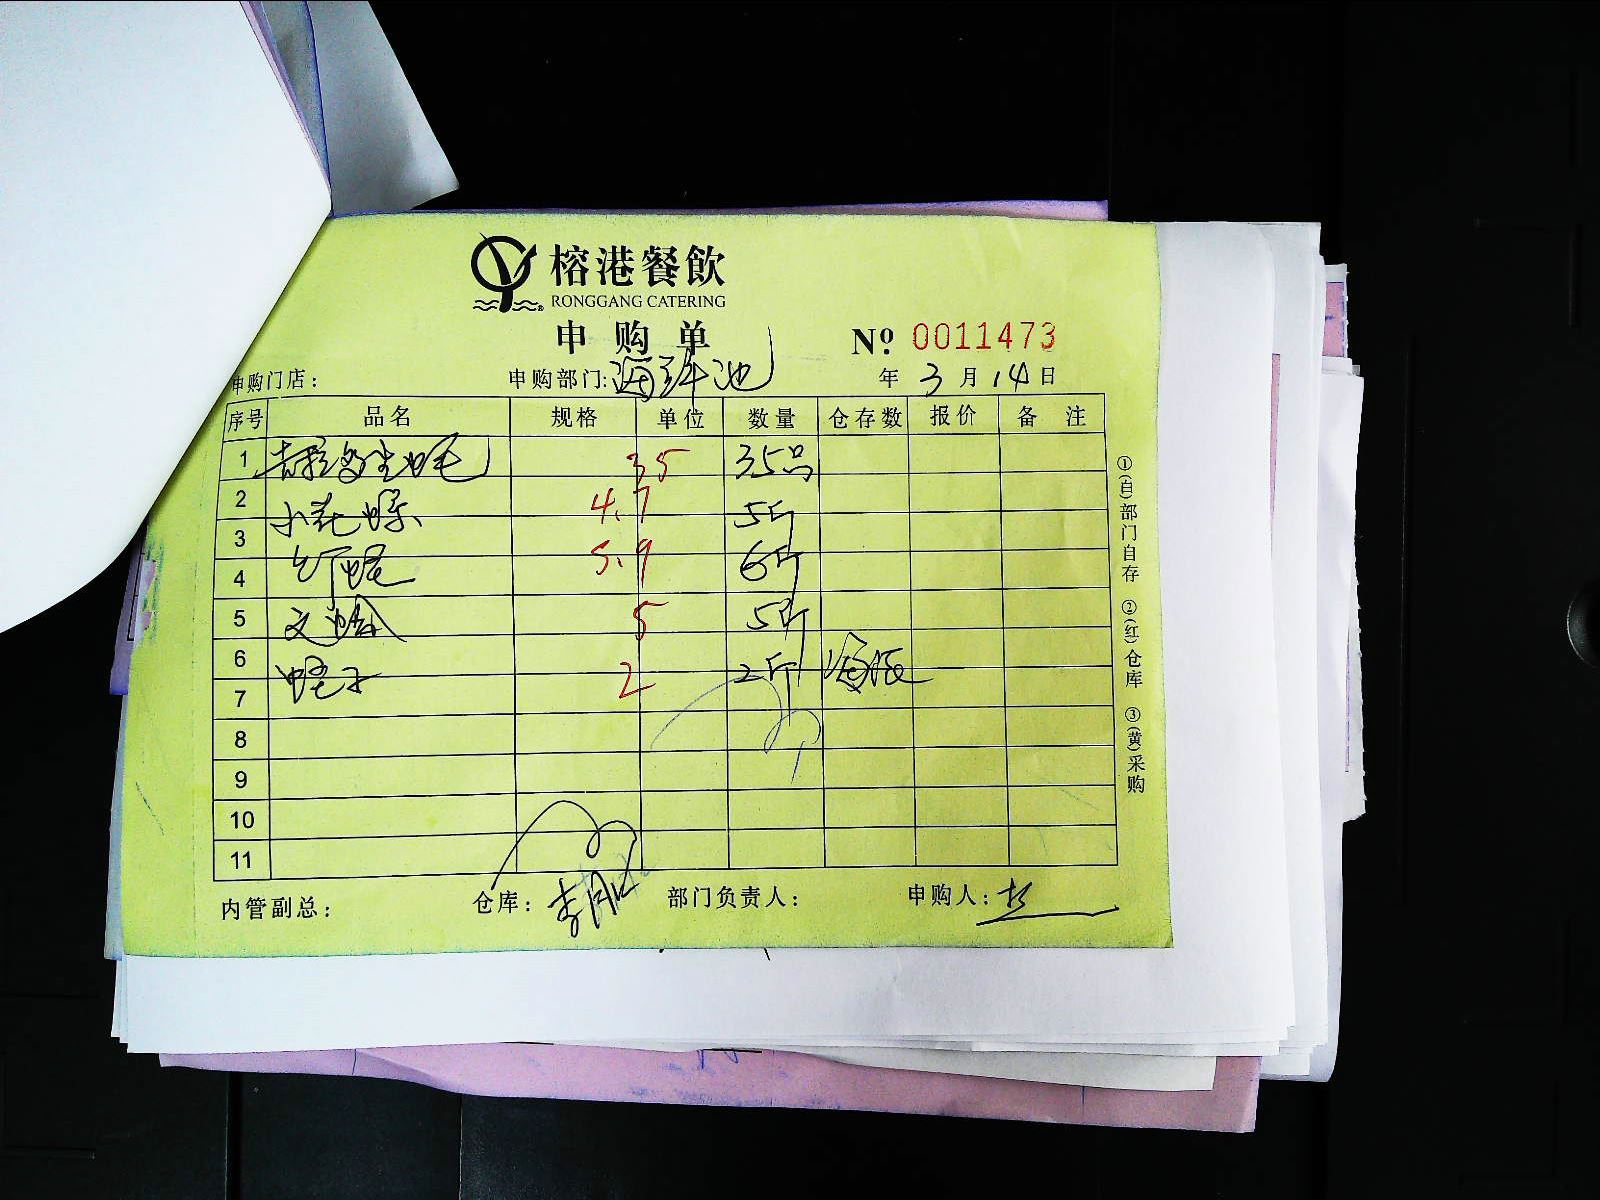 榕港餐飲
RONGGANG CATERING
申购单
№ 0011473
申购门店： 申购部门: 海鲜池 年 3 月 14 日
序号 品名 规格 单位 数量 仓存数 报价 备注
1 吉拉多生蚝 35 35只
2 小花螺 4.7 5斤
3 5.9 6斤
4
5 文蛤 5 5斤
6 蛏子 2 2斤
7
8
9
10
11
内管副总： 仓库： 部门负责人： 申购人：
①(白)部门自存 ②(红)仓库 ③(黄)采购